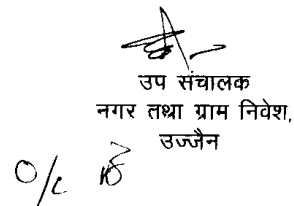 उप संचालक
नगर तथा ग्राम निवेश,
उज्जैन
O/c